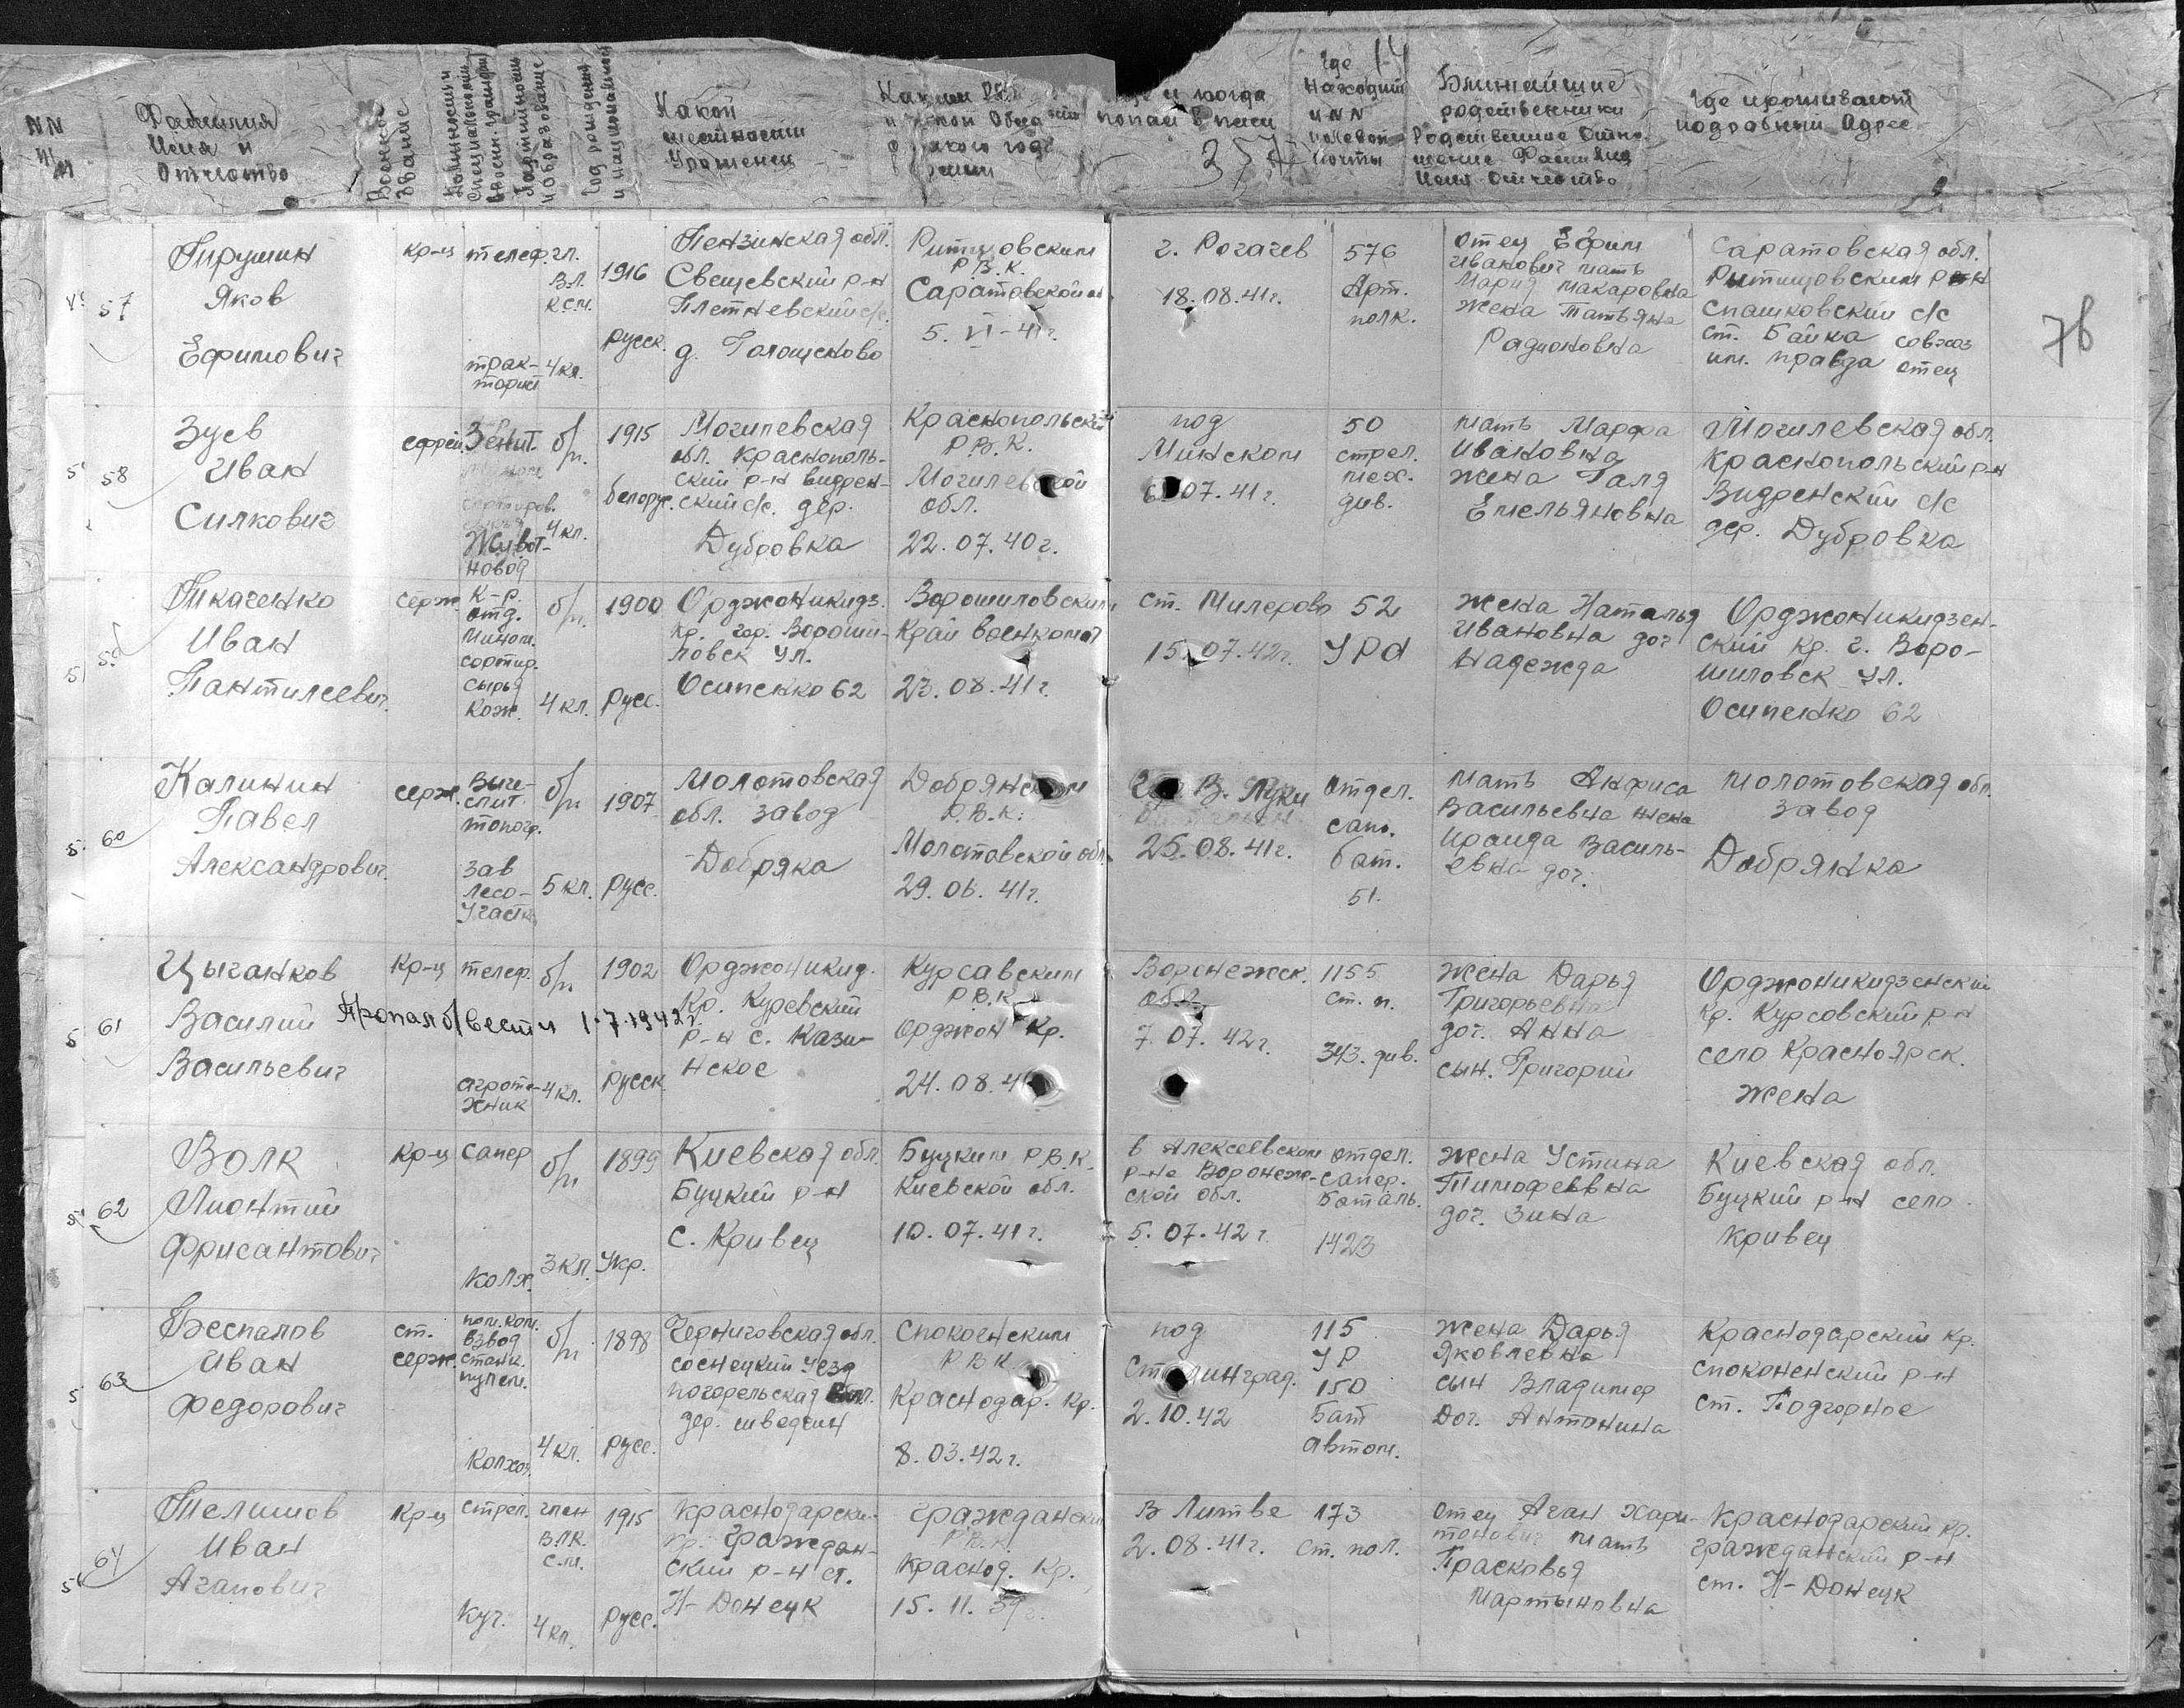 NN п/п
Фамилия Имя и Отчество
Военное звание
Год рождения и национальность
Какой местности Уроженец
и когда попал в плен
357
Где находился и NN полевой почты
Ближайшие родственники Родственные отно-шение Фамилия Имя Отчество
Где проживают подробный Адрес
76
57
Пирушин
Яков
Ефимович
кр-ц
телеф.
трак-
торист
чл.
ВЛ.
КСМ.
4 кл.
1916
русск.
Пензинская обл.
Свещевский р-н
Плетневский с/с.
д. Голощеково
Ритищовским
Р.В.К.
Саратовской
5. VI-41 г.
г. Рогачев
18.08.41 г.
576
Арт.
полк.
отец Ефим
Иванович мать
Мария Макаровна
жена Татьяна
Радионовна
Саратовская обл.
Ритищовским р-н
Спашковский с/с
ст. Байка совхоз
им. правда отец
58
Зуев
Иван
Силкович
ефрей.
Зенит.
Живот-
новод
б/п.
4 кл.
1915
белорус.
Могилевская
обл. Краснополь-
ский р-н видрен-
ский с/с. дер.
Дубровка
Краснопольский
Р.В.К.
Могилевской
обл.
22.07.40 г.
под
Минском
07.41 г.
50
стрел.
мех.
див.
мать Марфа
Ивановна
жена Галя
Емельяновна
Могилевская обл.
Краснопольский р-н
Видренский с/с
дер. Дубровка
59
Ткаченко
Иван
Пантилеевич.
серж
К-р.
отд.
Мином.
сортир.
сырья
кож.
б/п.
4 кл.
1900
русс.
Орджоникидз.
кр. гор. Вороши-
ловск ул.
Осипенко 62
Ворошиловским
Край военкомат
23.08.41 г.
ст. Милерово
15.07.42 г.
52
УРА
жена Наталья
Ивановна доч
Надежда
Орджоникидзен-
ский кр. г. Воро-
шиловск ул.
Осипенко 62
60
Калинин
Павел
Александрович.
серж.
Вычи-
слит.
топогр.
зав
лесо-
участк.
б/п
5 кл.
1907
русс.
Молотовская
обл. завод
Добряка
Добрянским
Р.В.К.
Молотовской обл.
29.06.41 г.
В. Луки
25.08.41 г.
отдел.
сап.
бат.
51.
мать Анфиса
Васильевна жена
Ираида Василь-
евна доч.
Молотовская обл.
завод
Добрянка
61
Цыганков
Василий
Васильевич
Пропал б/вести 1.7.1942 г.
кр-ц
телеф.
агроте-
хник
б/п
4 кл.
1902
русск.
Орджоникид.
Кр. Курсвский
р-н с. Кази-
нское
Курсавским
Р.В.К.
орджон Кр.
24.08.4
Воронежск.
обл.
7.07.42 г.
1155
ст. п.
343. див.
жена Дарья
Григорьевна
доч. Анна
сын. Григорий
Орджоникидзенский
кр. Курсовский р-н
село Красноярск.
жена
62
Волк
Лионтий
Фрисантович
кр-ц
сапер
колх.
б/п
3 кл.
1899
Укр.
Киевская обл.
Буцкий р-н
с. Кривец
Буцким Р.В.К.
Киевской обл.
10.07.41 г.
в Алексеевском
р-не Воронеж-
ской обл.
5.07.42 г.
отдел.
сапер.
Баталь.
1423
жена Устина
Тимофеевна
доч. Зина
Киевская обл.
Буцкий р-н село
Кривец
63
Беспалов
Иван
Федорович
ст.
серж.
пом. ком.
взвод
станк.
пулем.
колхоз.
б/п
4 кл.
1898
русс.
Черниговская обл.
соснецкий уезд
погорельская вол.
дер. шведчин
спокоенским
Р.В.К.
Краснодар. Кр.
8.03.42 г.
под
Сталинград.
2.10.42
115
УР
150
Бат
автом.
жена Дарья
Яковлевна
сын Владимер
Доч. Антонина
Краснодарский кр.
спокоенский р-н
ст. Подгорное
64
Телишов
Иван
Агапович
кр-ц
стрел.
куч.
член
ВЛК.
С.М.
4 кл.
1915
русс.
краснодарски.
кр. Граждан-
ский р-н ст.
Н-Донецк
гражданским
Р.В.К.
Краснод. Кр.
15.11.39 г.
В Литве
2.08.41 г.
173
ст. пол.
отец Аган Хари-
тонович мать
Прасковья
Мартыновна
Краснодарский кр.
гражданский р-н
ст. Н-Донецк